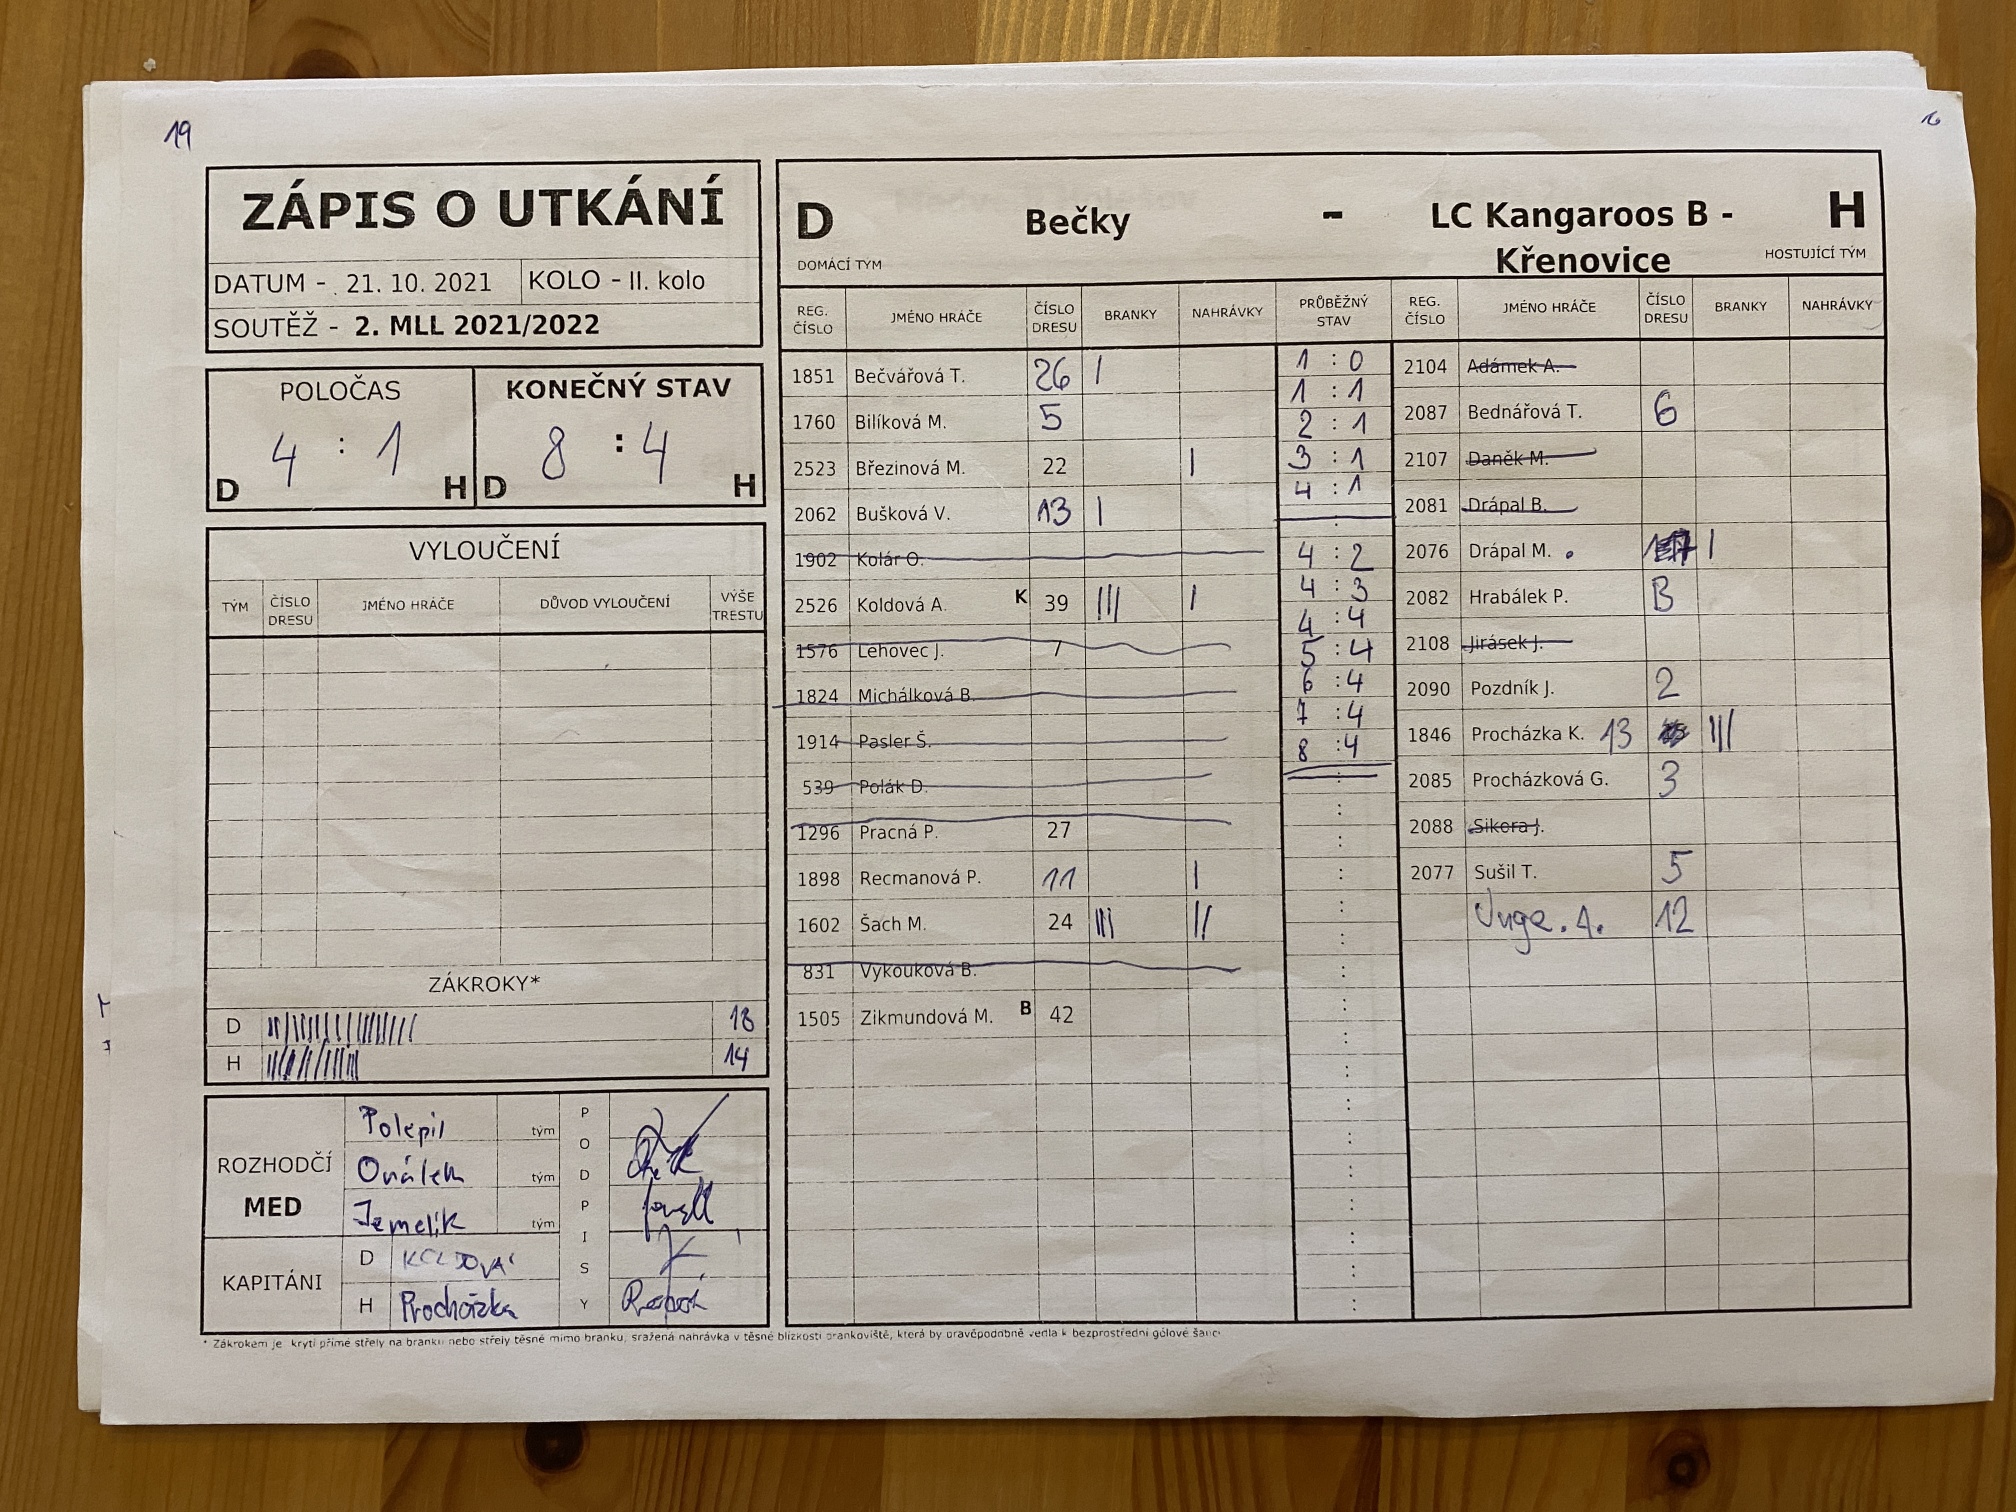 19
16
ZÁPIS O UTKÁNÍ
DATUM - 21. 10. 2021 KOLO - II. kolo
SOUTĚŽ - 2. MLL 2021/2022
POLOČAS KONEČNÝ STAV
4 : 1 8 : 4
D H D H
VYLOUČENÍ
TÝM ČÍSLO DRESU JMÉNO HRÁČE DŮVOD VYLOUČENÍ VÝŠE TRESTU
ZÁKROKY*
D 18
H 14
ROZHODČÍ
MED
Polepil tým
Oválek tým
Jemelík tým
PODPISY
KAPITÁNI
D KOLDOVÁ
H Procházka
D Bečky - LC Kangaroos B - Křenovice H
DOMÁCÍ TÝM HOSTUJÍCÍ TÝM
REG. ČÍSLO JMÉNO HRÁČE ČÍSLO DRESU BRANKY NAHRÁVKY PRŮBĚŽNÝ STAV REG. ČÍSLO JMÉNO HRÁČE ČÍSLO DRESU BRANKY NAHRÁVKY
1851 Bečvářová T. 26 |
1760 Bilíková M. 5
2523 Březinová M. 22 |
2062 Bušková V. 13 |
1902 Kolár O.
2526 Koldová A. K 39 ||| |
1576 Lehovec J. 7
1824 Michálková B.
1914 Pasler Š.
539 Polák D.
1296 Pracná P. 27
1898 Recmanová P. 11 |
1602 Šach M. 24 ||| ||
831 Vykouková B.
1505 Zikmundová M. B 42
1 : 0
1 : 1
2 : 1
3 : 1
4 : 1
4 : 2
4 : 3
4 : 4
5 : 4
6 : 4
7 : 4
8 : 4
2104 Adámek A.
2087 Bednářová T. 6
2107 Daněk M.
2081 Drápal B.
2076 Drápal M. |
2082 Hrabálek P. B
2108 Jirásek J.
2090 Pozdník J. 2
1846 Procházka K. 13 |||
2085 Procházková G. 3
2088 Sikora J.
2077 Sušil T. 5
A. 12
* Zákrokem je krytí přímé střely na branku nebo střely těsně mimo branku, sražená nahrávka v těsné blízkosti brankoviště, která by pravěpodobně vedla k bezprostřední gólové šanci